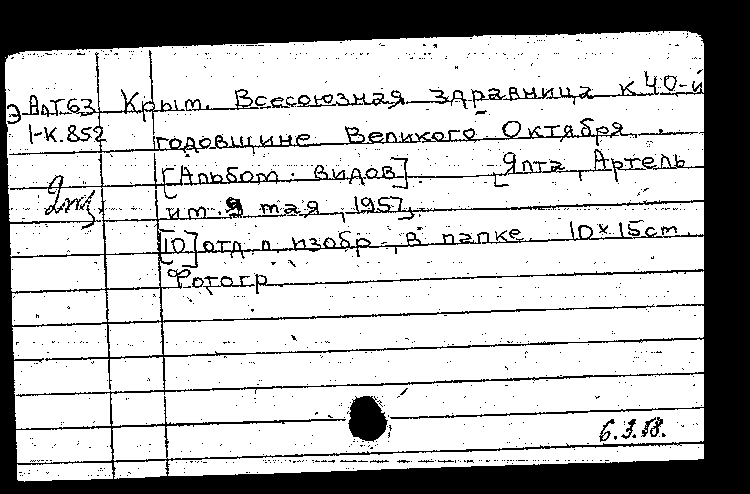 Э АлТ63 Крым. Всесоюзная здравница к 40-й
1-К.852 годовщине Великого Октября.
[Альбом видов]. [Ялта, Артель
2 экз. им. 9 мая, 1957].
[10] отд. л. изобр., в папке 10×15cm.
Фотогр.
6.3.58.